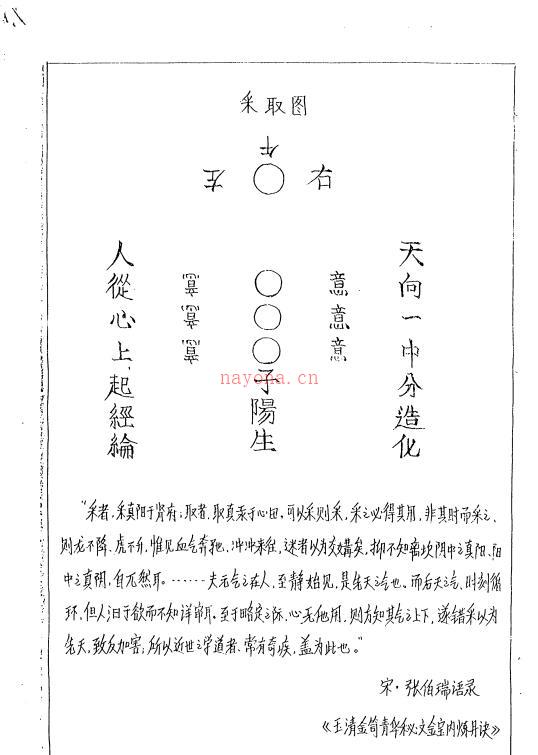 采取图
午
左 右
天向一中分造化
意 意 意
子陽生
人從心上起經綸
nayona.cn
“采者，采真阳于肾府；取者，取真汞于心田，可以采则采，采之必得其用，非其时而采之，
则龙不降、虎不升，惟见血气奔驰、冲冲来往，迷者以为交媾矣，抑不知离坎阴中之真阳、阳
中之真阴，自兀然耳。……夫元气之在人，至静始见，是先天之气也。而后天之气，时刻循
环，但人汩于欲而不知详审耳。至于略定之际，心无他用，则方知其气之上下，遂错采以为
先天，致反加害；所以近世之学道者，常有奇疾，盖为此也。”
宋·张伯瑞语录
《玉清金笥青华秘文金室内炼丹诀》